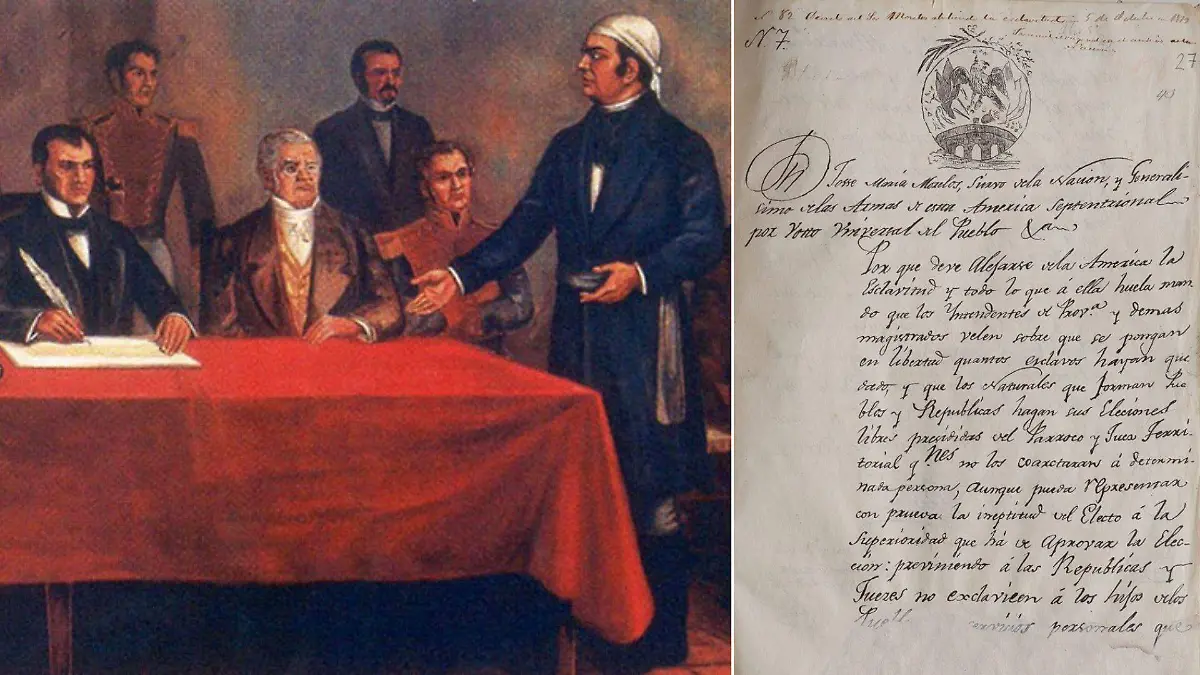 N. 82 Decreto del Sr Morelos aboliendo la esclavitud, 5 de Octubre 1813
N. 7.
27
Dn Josse María Morelos, Siervo dela Nacion, y Generali-
simo delas Armas de esta America Septentrional
por Voto Universal del Pueblo &a
Por que deve Alejarse dela America la
Esclavitud y todo lo que á ella huela man
do que los Yntendentes de Prova y demas
magistrados velen sobre que se pongan
en libertad quantos esclavos hayan que
dado, y que los Naturales que forman Pue
blos y Republicas hagan sus Eleciones
libres precididas del Parroco y Juez Terri-
torial qnes no los coartaran á determi-
nada persona, aunque pueda representar
con prueva la ineptitud del Electo á la
Superioridad que há de Aprovar la Elec-
ción: previniendo á las Republicas y
Jueres no exclavicen á los hijos delos
servicios personales que